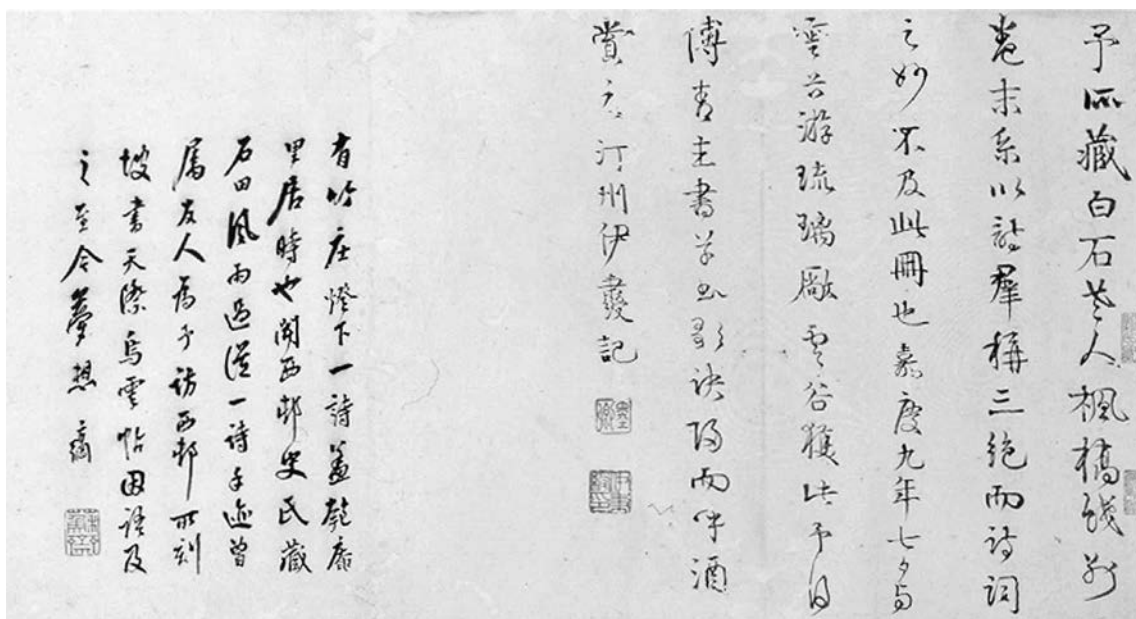 予所藏白石老人楓橋餞別
卷末系以詩群稱三絕而詩詞
之妙不及此冊也嘉慶九年七夕與
雲谷游琉璃廠雲谷獲此予得
傅青主書草書歌訣隔雨呼酒
賞之汀州伊秉綬記
有竹庄燈下一詩蓋匏庵
里居時也聞西邨史氏藏
石田風雨過從一詩手迹曾
属友人為予訪西邨所刻
坡書天際烏雲帖因語及
之至今夢想